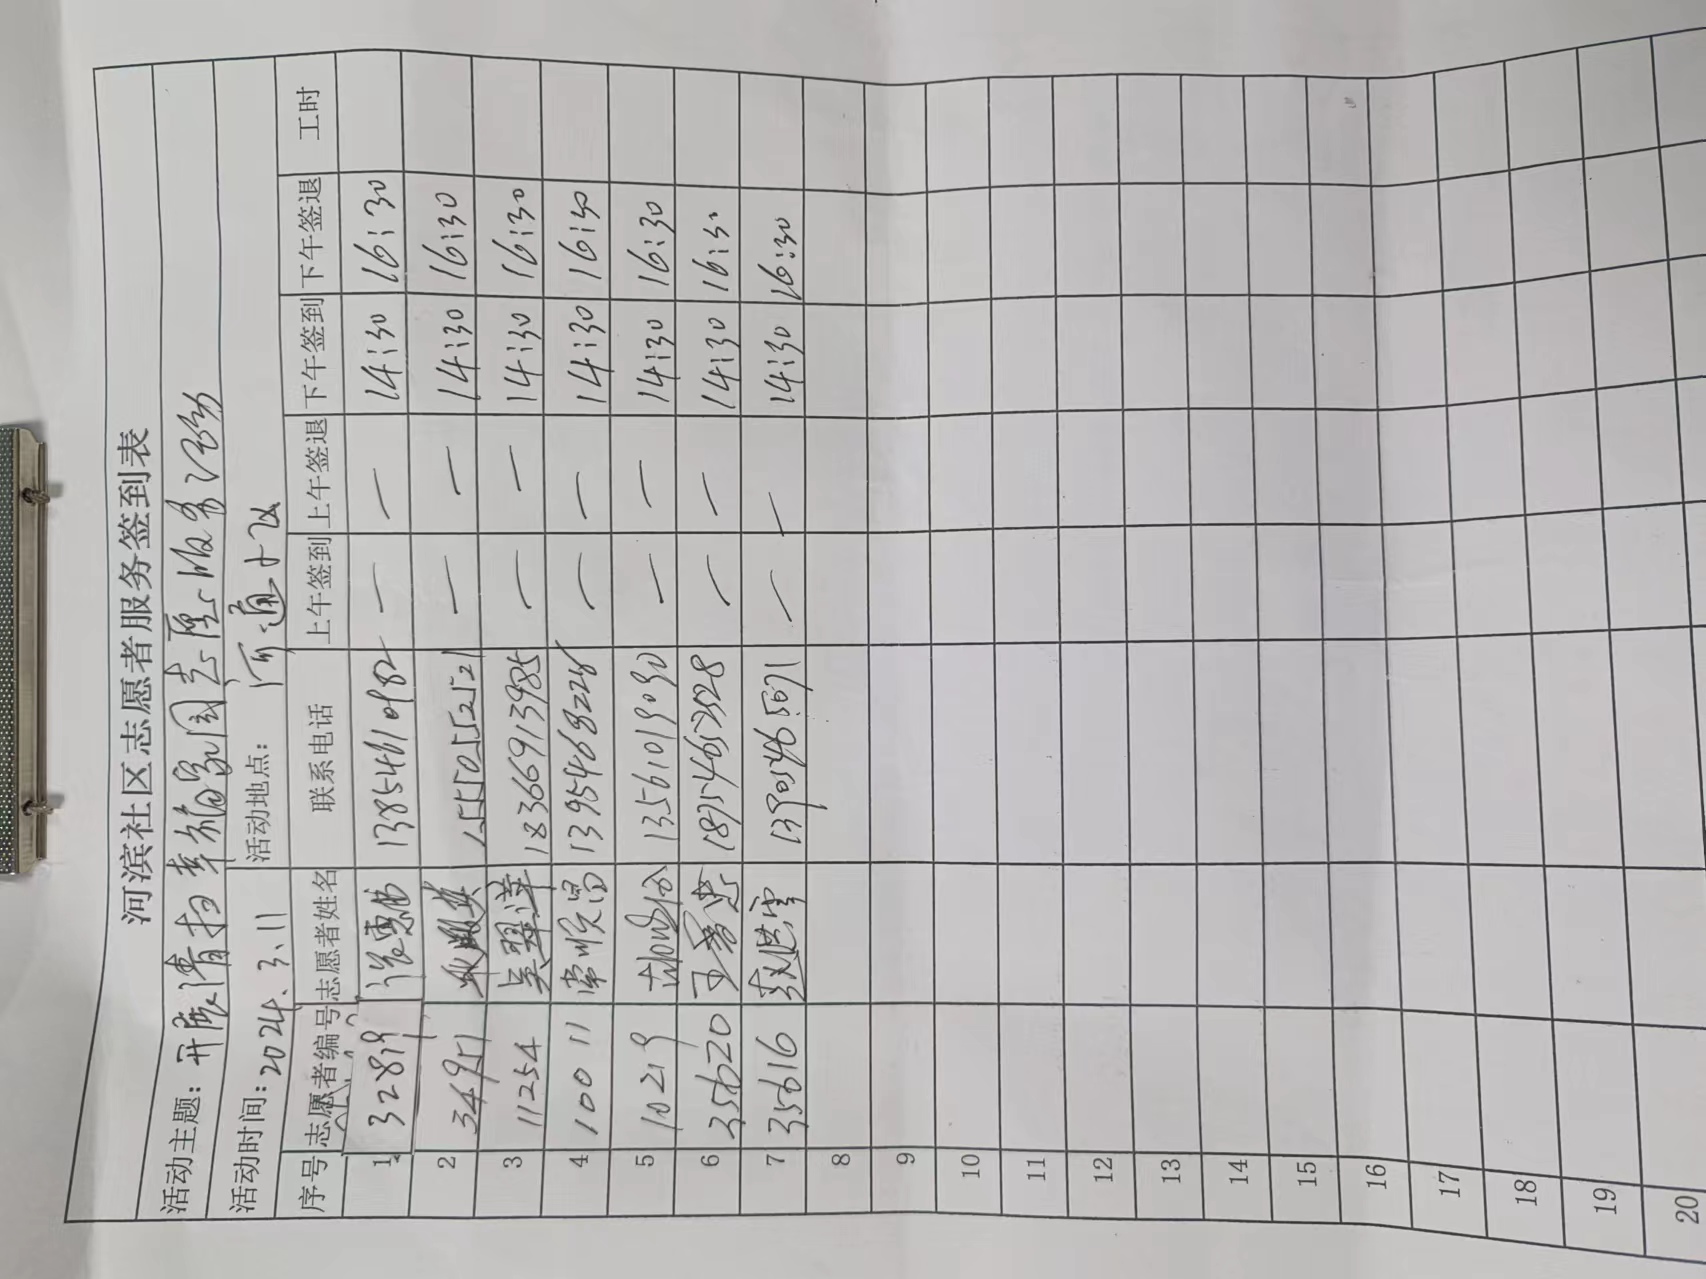 河滨社区志愿者服务签到表
活动主题：开展清扫幸福家园志愿服务活动
活动时间：2024.3.11 活动地点：河通小区
序号 志愿者编号 志愿者姓名 联系电话 上午签到 上午签退 下午签到 下午签退 工时
1 32819 13854610982 — — 14:30 16:30
2 34951 15550252521 — — 14:30 16:30
3 11254 吴翠萍 18366913985 — — 14:30 16:30
4 10011 常顺昌 13954682226 — — 14:30 16:30
5 10219 13561019030 — — 14:30 16:30
6 35620 18754652528 — — 14:30 16:30
7 35616 赵洪雪 13905465671 — — 14:30 16:30
8
9
10
11
12
13
14
15
16
17
18
19
20